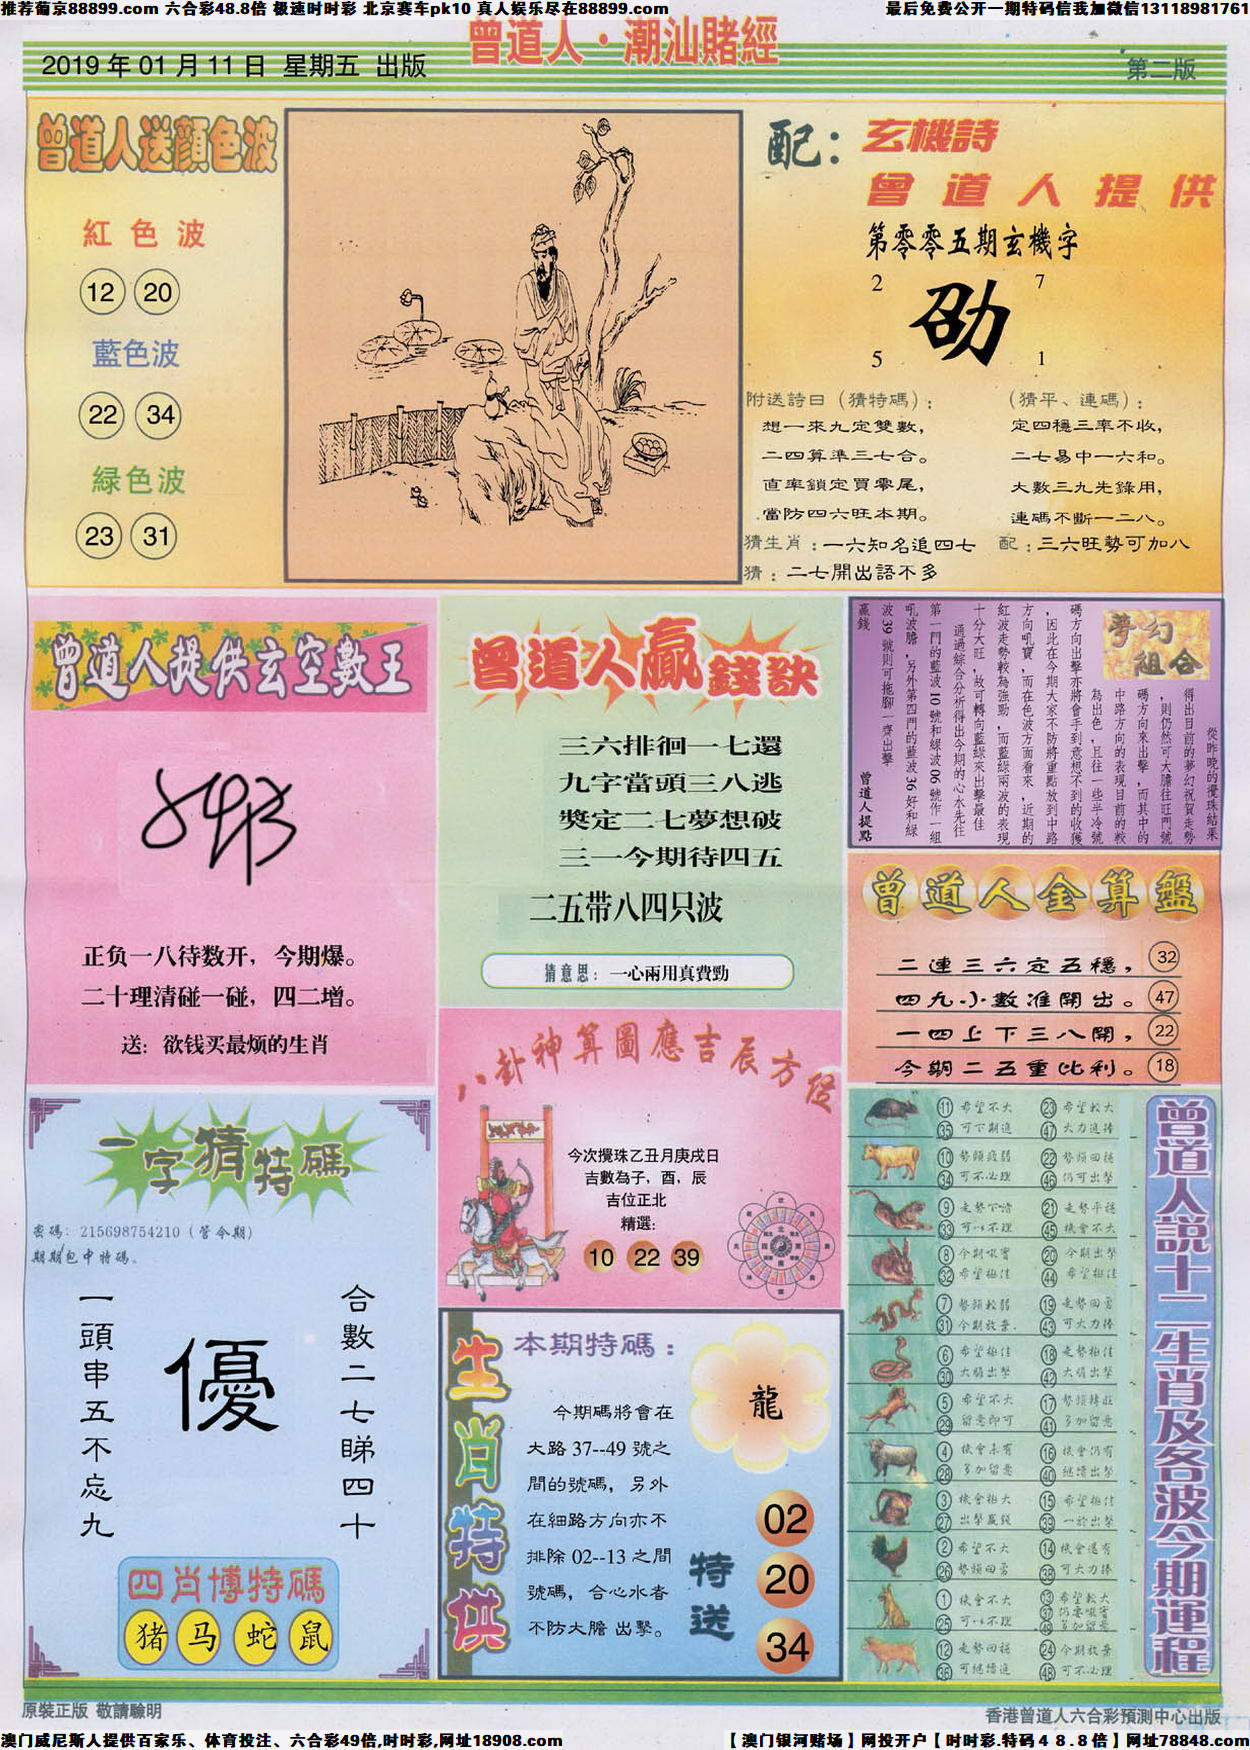 推荐葡京88899.com 六合彩48.8倍 极速时时彩 北京赛车pk10 真人娱乐尽在88899.com
最后免费公开一期特码信我加微信13118981761
曾道人·潮汕賭經
2019 年 01 月 11 日 星期五 出版
第二版
曾道人送顔色波
紅色波
12 20
藍色波
22 34
緑色波
23 31
配：
玄機詩
曾道人提供
第零零五期玄機字
2 7
劭
5 1
附送詩曰（猜特碼）：
想一來九定雙數，
二四算準三七合。
直率鎖定買零尾，
當防四六旺本期。
（猜平、連碼）：
定四穩三率不收，
二七易中一六和。
大數三九先錄用，
連碼不斷一二八。
猜生肖：一六知名追四七
配：三六旺勢可加八
猜：二七開出語不多
曾道人提供玄空數王
正负一八待数开，今期爆。
二十理清碰一碰，四二增。
送：欲钱买最烦的生肖
曾道人贏錢訣
三六排徊一七還
九字當頭三八逃
獎定二七夢想破
三一今期待四五
二五带八四只波
猜意思：一心兩用真費勁
夢幻組合
從昨晚的攪珠結果
得出目前的夢幻祝賀走勢
，則仍然可大膽往旺門號
碼方向來出擊，而其中的
中路方向的表現目前的較
為出色，且往一些半冷號
碼方向出擊亦將會手到意想不到的收獲
，因此在今期大家不防將重點放到中路
方向吼寶，而在色波方面看來，近期的
紅波走勢較為強勁，而藍綠兩波的表現
十分大旺，故可轉向藍綠來出擊最佳
通過綜合分析得出今期的心水先往
第一門的藍波10號和綠波06號作一組
吼波膽，另外第四門的藍波36好和綠
波39號則可拖腳一齊出擊
贏錢
曾道人提點
曾道人金算盤
二連三六定五穩， 32
四九小數准開出。 47
一四上下三八開， 22
今期二五重比利。 18
八卦神算圖應吉辰方位
今次攪珠乙丑月庚戌日
吉數為子，酉，辰
吉位正北
精選：
10 22 39
一字猜特碼
密碼：215698754210（管今期）
期期包中特碼。
合數二七睇四十
優
一頭串五不忘九
四肖博特碼
猪 马 蛇 鼠
生肖特供
本期特碼：
龍
今期碼將會在
大路 37--49 號之
間的號碼，另外
在細路方向亦不
排除 02--13 之間
號碼，合心水者
不防大膽出擊。
特送
02
20
34
曾道人説十二生肖及各波今期運程
11 希望不大 23 希望較大
35 可下期追 47 大力追捧
10 勢頭疲弱 22 勢頭回穩
34 可不必理 46 仍可出擊
9 走勢不清 21 走勢平穩
33 可以不理 45 機會不大
8 今期吼實 20 今期出擊
32 希望極佳 44 希望極佳
7 勢頭較弱 19 走勢回勇
31 今期放棄 43 可大力捧
6 希望極佳 18 走勢極佳
30 大膽出擊 42 大膽出擊
5 希望不大 17 勢頭轉旺
29 留意即可 41 多加留意
4 機會未有 16 機會仍有
28 多加留意 40 繼續出擊
3 機會極大 15 希望極佳
27 出擊贏錢 39 一於出擊
2 希望不大 14 機會還有
26 勢頭回勇 38 可大力捧
1 機會不大 13 希望較大
25 可以不理 37 仍要吼實
49 多加留意
12 走勢回穩 24 今期放棄
36 可繼續追 48 可不必理
原裝正版 敬請驗明
香港曾道人六合彩預測中心出版
澳门威尼斯人提供百家乐、体育投注、六合彩49倍,时时彩,网址18908.com
【澳门银河赌场】网投开户【时时彩.特码４８.８倍】网址78848.com